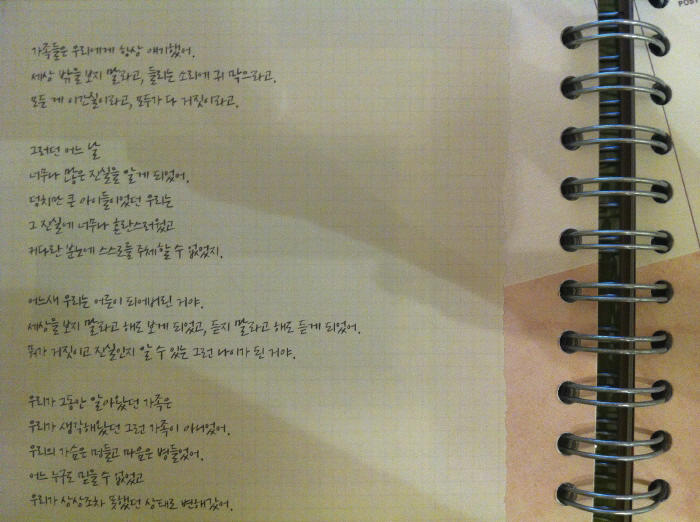 가족들은 우리에게 항상 얘기했어.
세상 밖을 보지 말라고, 들리는 소리에 귀 막으라고.
모든 게 이간질이라고, 모두가 다 거짓이라고.
그러던 어느 날
너무나 많은 진실을 알게 되었어.
덩치만 큰 아이들이었던 우리는
그 진실에 너무나 혼란스러웠고
커다란 분노에 스스로를 주체할 수 없었지.
어느새 우리는 어른이 되어버린 거야.
세상을 보지 말라고 해도 보게 되었고, 듣지 말라고 해도 듣게 되었어.
뭐가 거짓이고 진실인지 알 수 있는 그런 나이가 된 거야.
우리가 그동안 알아왔던 가족은
우리가 생각해왔던 그런 가족이 아니었어.
우리의 가슴은 멍들고 마음은 병들었어.
어느 누구도 믿을 수 없었고
우리가 상상조차 못했던 상태로 변해갔어.
POST